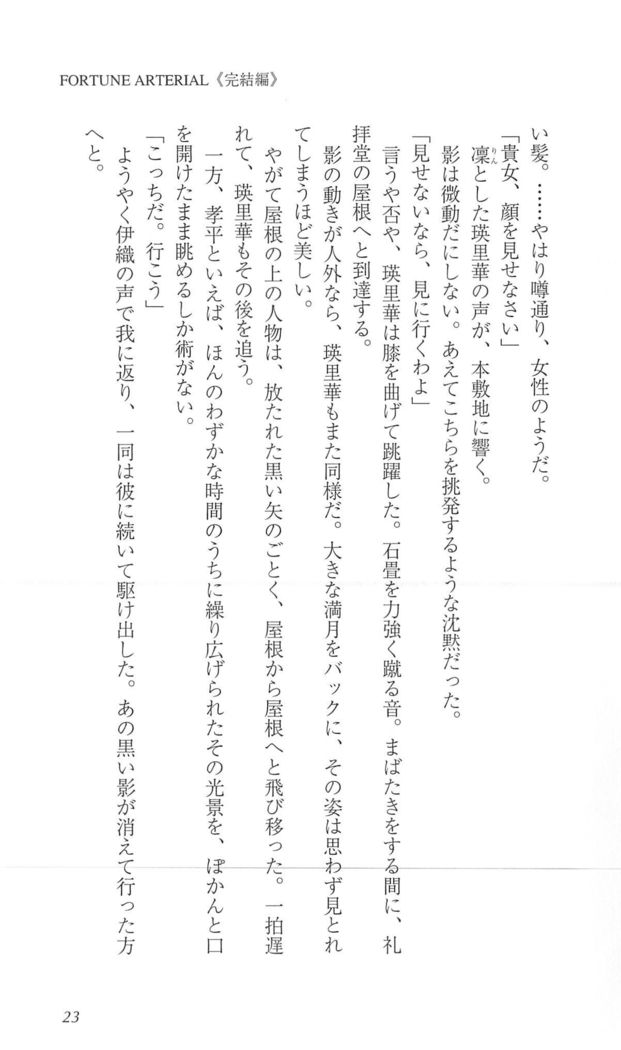 FORTUNE ARTERIAL《完結編》
い髪。……やはり噂通り、女性のようだ。
「貴女、顔を見せなさい」
凜りんとした瑛里華の声が、本敷地に響く。
影は微動だにしない。あえてこちらを挑発するような沈黙だった。
「見せないなら、見に行くわよ」
言うや否や、瑛里華は膝を曲げて跳躍した。石畳を力強く蹴る音。まばたきをする間に、礼
拝堂の屋根へと到達する。
影の動きが人外なら、瑛里華もまた同様だ。大きな満月をバックに、その姿は思わず見とれ
てしまうほど美しい。
やがて屋根の上の人物は、放たれた黒い矢のごとく、屋根から屋根へと飛び移った。一拍遅
れて、瑛里華もその後を追う。
一方、孝平といえば、ほんのわずかな時間のうちに繰り広げられたその光景を、ぽかんと口
を開けたまま眺めるしか術がない。
「こっちだ。行こう」
ようやく伊織の声で我に返り、一同は彼に続いて駆け出した。あの黒い影が消えて行った方
へと。
23